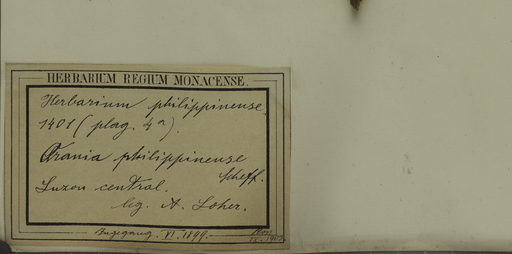 HERBARIUM REGIUM MONACENSE.
Herbarium philippinense.
1401 (plag. 4a).
Orania philippinense
Scheff.
Luzon central.
leg. A. Loher.
Ingegang. VI. 1899.